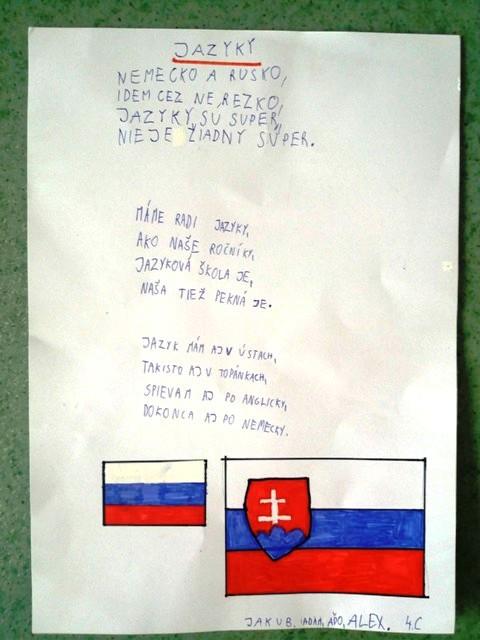 JAZYKY
NEMECKO A RUSKO,
IDEM CEZ NE REZKO,
JAZYKY SU SUPER,
NIE JE ŽIADNY SÚPER.
MÁME RADI JAZYKY,
AKO NAŠE ROČNÍKY,
JAZYKOVÁ ŠKOLA JE,
NAŠA TIEŽ PEKNÁ JE.
JAZYK MÁM AJ V ÚSTACH,
TAKISTO AJ V TOPÁNKACH,
SPIEVAM AJ PO ANGLICKY,
DOKONCA AJ PO NEMECKY.
JAKUB, ADAM, AĎO, ALEX. 4.C